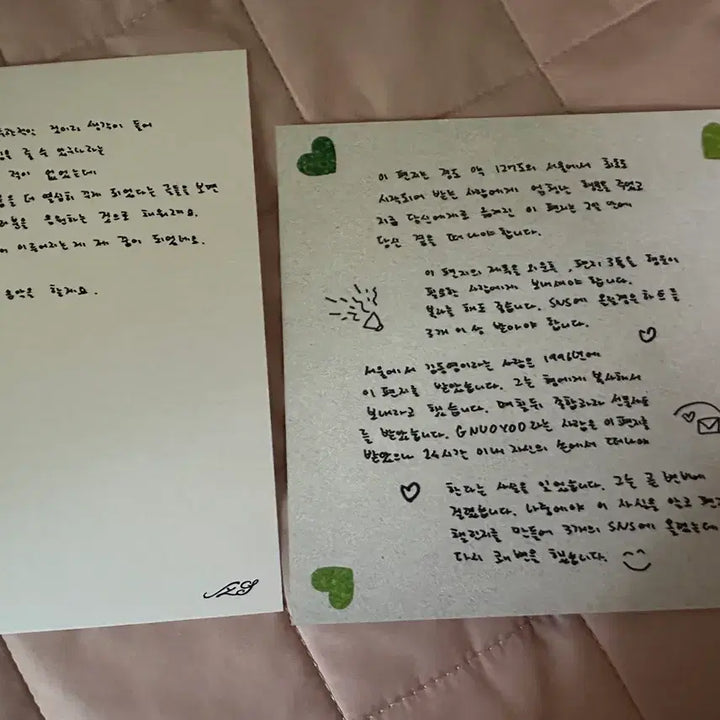 것이라 생각이 들어
줄 수 있구나라는
적이 없었는데
더 열심히 꾸게 되었다는 글들을 보면
응원하는 것으로 채워져요.
이루어지는게 제 꿈이 되었네요.
음악을 할게요.
이 편지는 경도 약 127도의 서울에서 최초로
시작되어 받는 사람에게 엄청난 행운을 주었고
지금 당신에게로 옮겨진 이 편지는 2일 안에
당신 곁을 떠나야 합니다.
이 편지의 제목을 외운 후, 편지 3통을 행운이
필요한 사람에게 보내셔야 합니다.
복사를 해도 좋습니다. SNS에 올렸을경우 하트를
3개 이상 받아야 합니다.
서울에서 김동영이라는 사람은 1996년에
이 편지를 받았습니다. 그는 형에게 복사해서
보내라고 했습니다. 며칠뒤 종합과자 선물세트
를 받았습니다. GNUOYOD라는 사람은 이 편지를
받았으나 24시간 이내 자신의 손에서 떠나야
한다는 사실을 잊었습니다. 그는 곧 변비에
걸렸습니다. 나중에야 이 사실을 알고
챌린지를 만들어 3개의 SNS에 올렸는데
다시 쾌변을 했습니다.